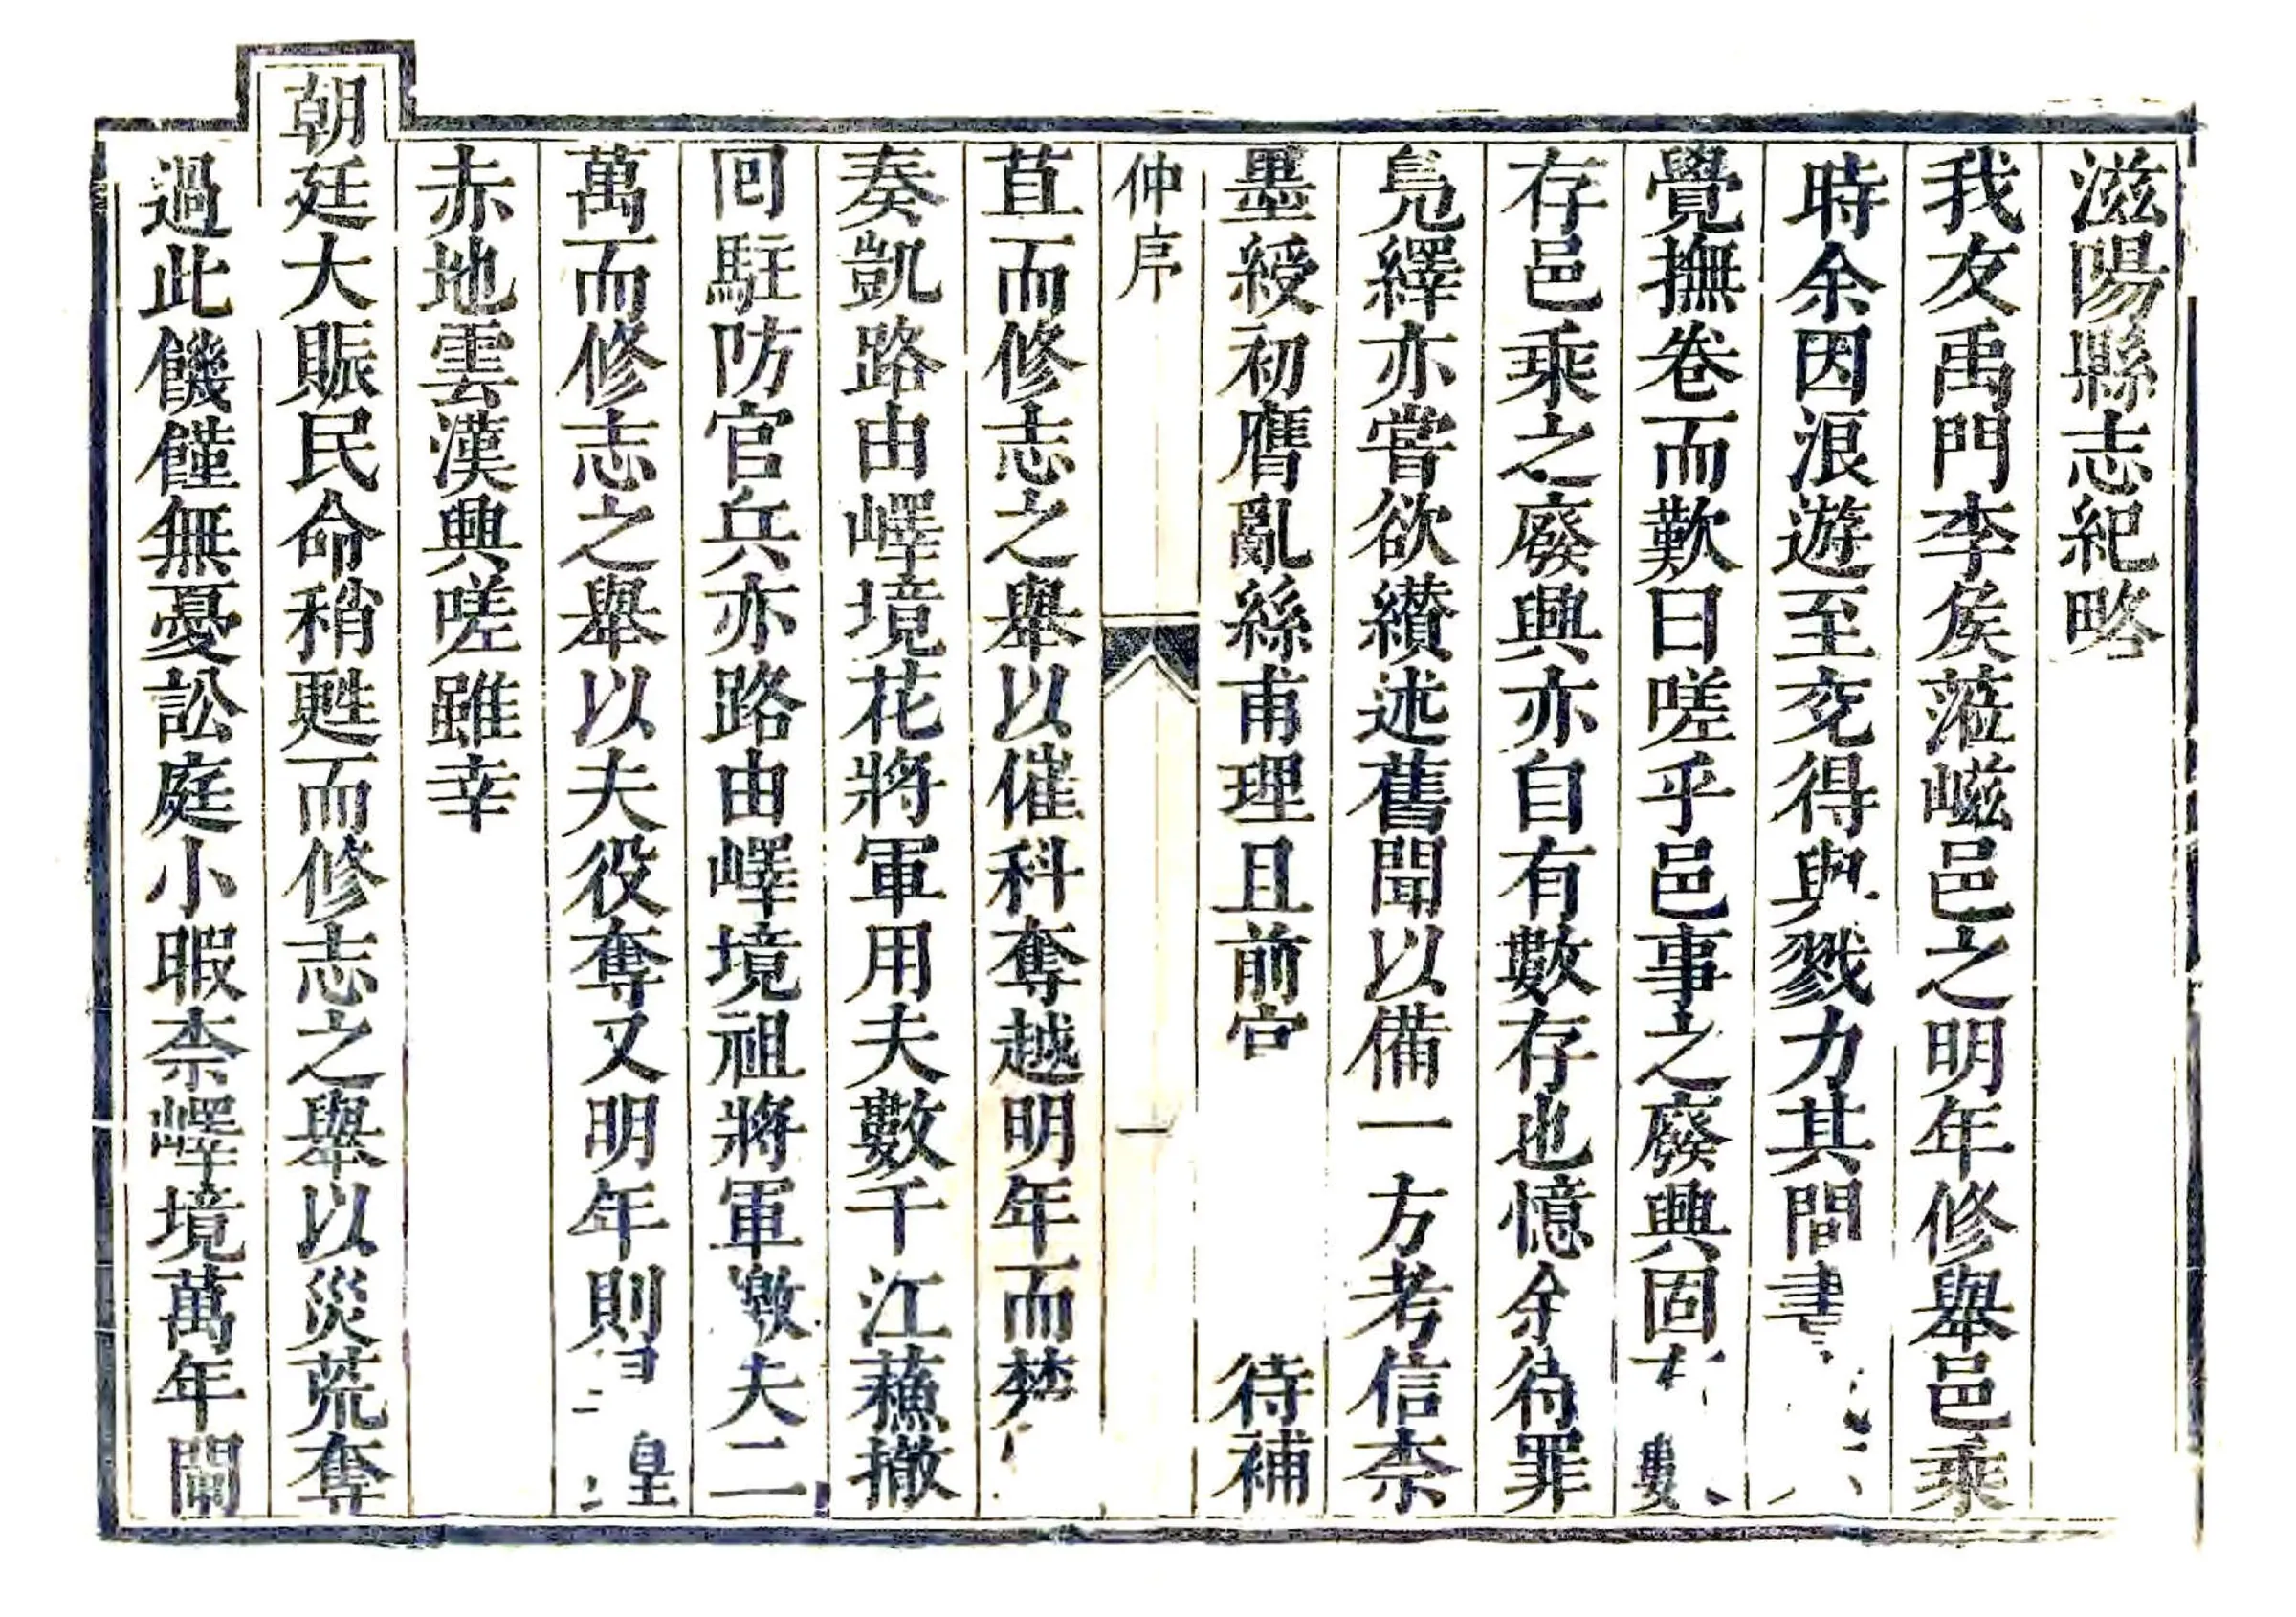 滋陽縣志紀略
我友禹門李矦蒞嵫邑之明年修舉邑乘
時余因浪遊至兗得與戮力其間書
覺撫卷而歎曰嗟乎邑事之廢興固有數
存邑乘之廢興亦自有數存也憶余待罪
鳧繹亦嘗欲纉述舊聞以備一方考信柰
墨綬初膺亂絲甫理且前官 待補
仲序
一
苴而修志之舉以催科奪越明年而楚
奏凱路由嶧境花將軍用夫數千江蘓撤
囘駐防官兵亦路由嶧境祖將軍檄夫二
萬而修志之舉以夫役奪又明年則皇
赤地雲漢興嗟雖幸
朝廷大賑民命稍甦而修志之舉以災荒奪
過此饑饉無憂訟庭小暇柰嶧境萬年閘